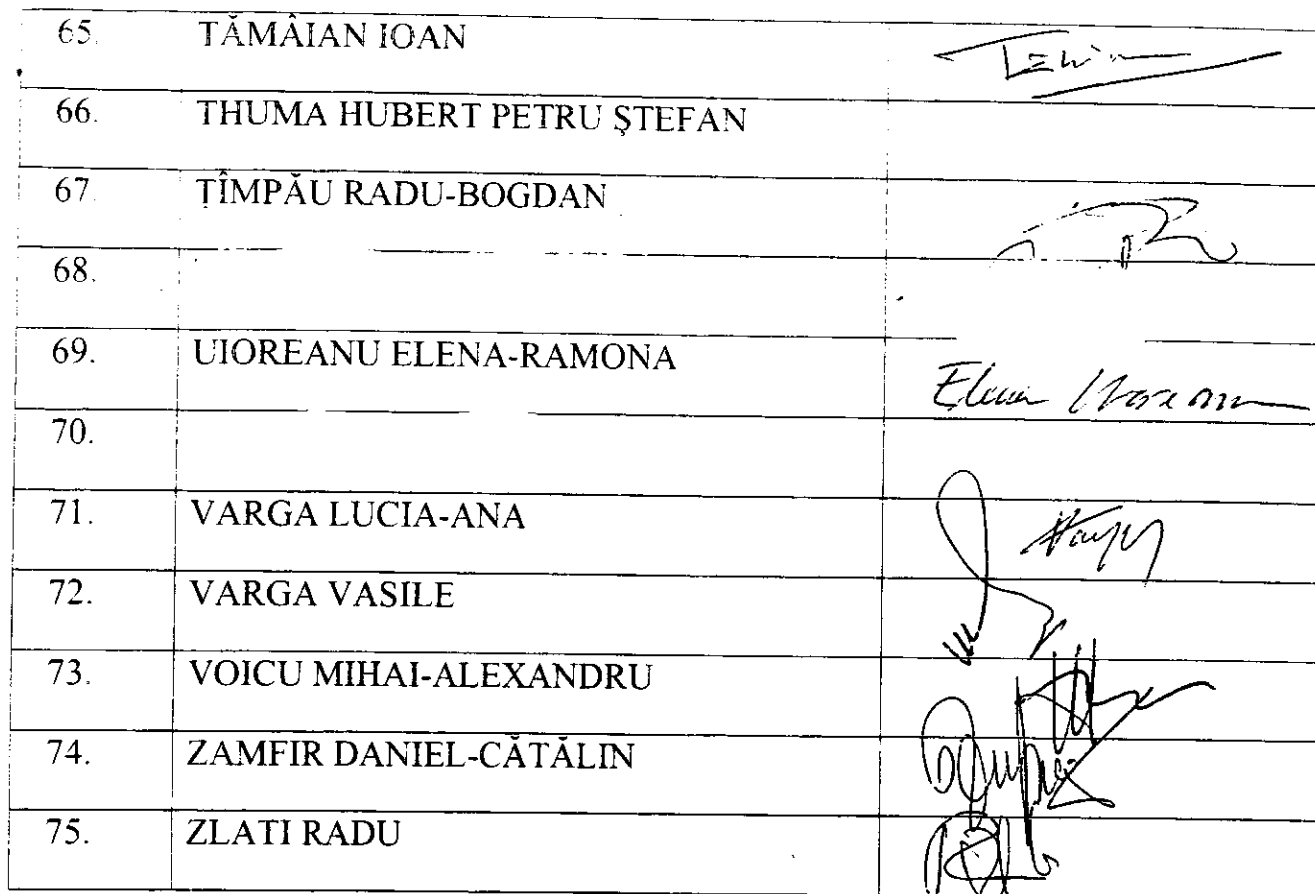 65. TĂMÂIAN IOAN
66. THUMA HUBERT PETRU ŞTEFAN
67. ŢÎMPĂU RADU-BOGDAN
68.
69. UIOREANU ELENA-RAMONA
70.
71. VARGA LUCIA-ANA
72. VARGA VASILE
73. VOICU MIHAI-ALEXANDRU
74. ZAMFIR DANIEL-CĂTĂLIN
75. ZLATI RADU